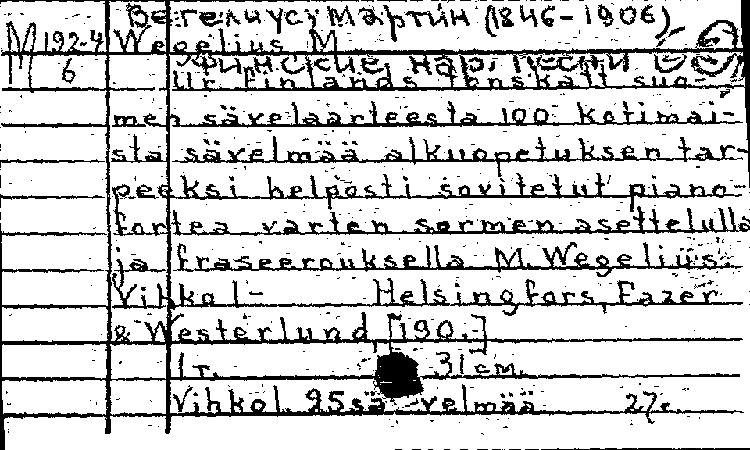 Вегелиус, Мартин (1846-1906)
М 192-4 Wegelius M
6 Финские нар. песни
Ur Finlands tonskatt suo-
men sävelaarteesta 100 kotimai-
sta sävelmää alkuopetuksen tar-
peeksi helposti sovitetut piano-
fortea varten sormen asettelulla
ja fraseerauksella M. Wegelius.
Vihko 1- Helsingfors, Fazer
& Westerlund, [190.]
1 т. 31 см.
Vihko 1. 25 sä velmää 27с.